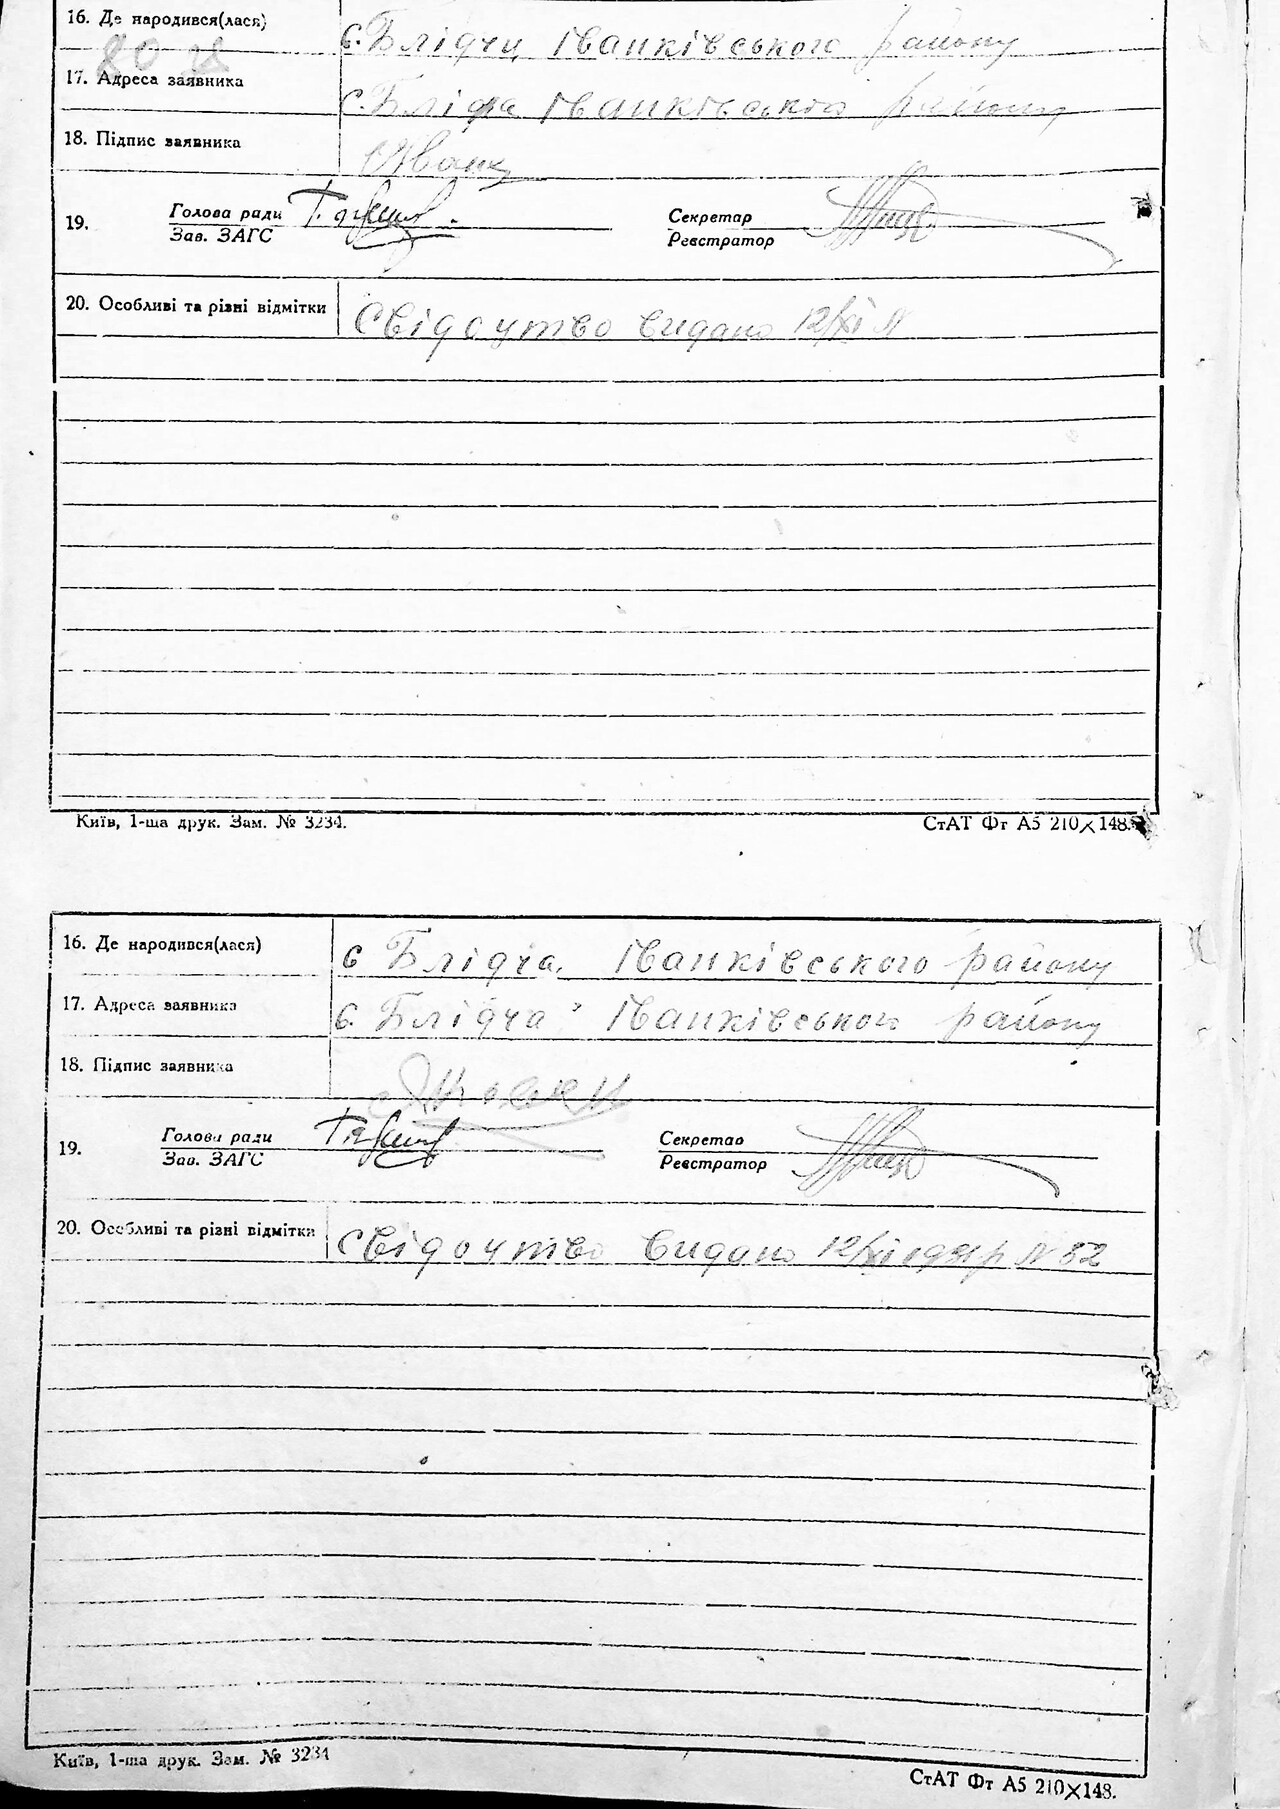 16. Де народився(лася) с. Блідчи Іванківського району
17. Адреса заявника с. Блідча Іванківського району
18. Підпис заявника
19. Голова ради Секретар
Зав. ЗАГС Реєстратор
20. Особливі та різні відмітки Свідоцтво видано 12/XI N
Київ, 1-ша друк. Зам. № 3234. СтАТ Фт А5 210×148.
16. Де народився(лася) с Блідча, Іванківського району
17. Адреса заявника с. Блідча Іванківського району
18. Підпис заявника
19. Голова ради Секретар
Зав. ЗАГС Реєстратор
20. Особливі та різні відмітки Свідоцтво видано N 82
Київ, 1-ша друк. Зам. № 3234 СтАТ Фт А5 210×148.